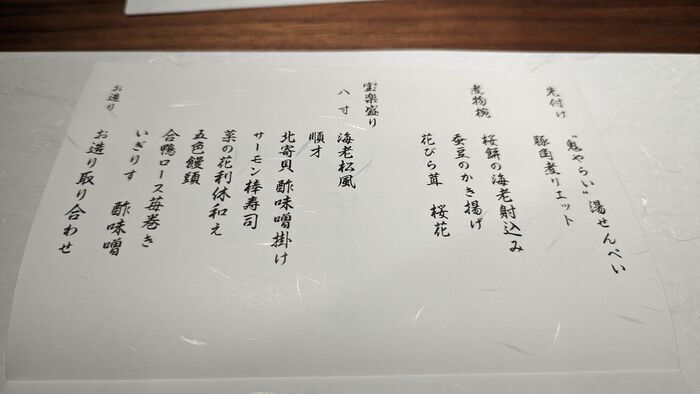 "鬼やらい" 湯せんべい
先付け
豚角煮リエット
桜餅の海老射込み
煮物椀
蚕豆のかき揚げ
花びら茸 桜花
宝楽盛り
八寸
海老松風
順才
北寄貝 酢味噌掛け
サーモン棒寿司
菜の花利休和え
五色饅頭
合鴨ロース苺巻き
いぎりす 酢味噌
お造り
お造り取り合わせ